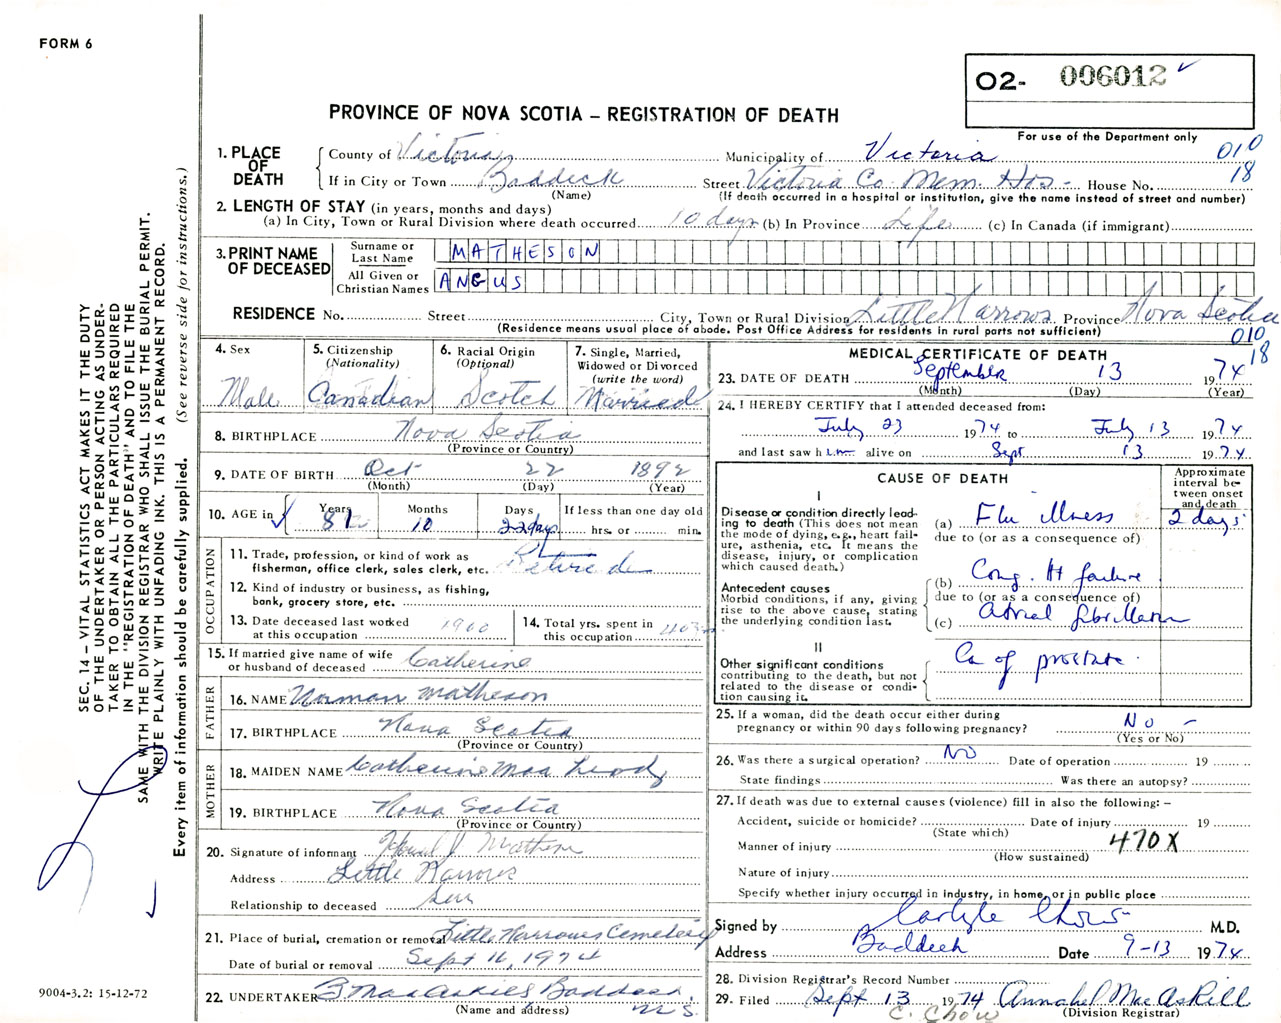 FORM 6
O2- 006012
PROVINCE OF NOVA SCOTIA – REGISTRATION OF DEATH
For use of the Department only
SEC. 14 – VITAL STATISTICS ACT MAKES IT THE DUTY
OF THE UNDERTAKER OR PERSON ACTING AS UNDER-
TAKER TO OBTAIN ALL THE PARTICULARS REQUIRED
IN THE "REGISTRATION OF DEATH" AND TO FILE THE
SAME WITH THE DIVISION REGISTRAR WHO SHALL ISSUE THE BURIAL PERMIT.
WRITE PLAINLY WITH UNFADING INK. THIS IS A PERMANENT RECORD.
Every item of information should be carefully supplied. (See reverse side for instructions.)
1. PLACE OF DEATH
County of Victoria Municipality of Victoria 010
If in City or Town Baddeck Street Victoria Co Mem Hos - House No. 18
(Name) (If death occurred in a hospital or institution, give the name instead of street and number)
2. LENGTH OF STAY (in years, months and days)
(a) In City, Town or Rural Division where death occurred 10 days (b) In Province Life (c) In Canada (if immigrant)
3. PRINT NAME OF DECEASED
Surname or Last Name MATHESON
All Given or Christian Names ANGUS
RESIDENCE No. Street City, Town or Rural Division Little Narrows Province Nova Scotia
(Residence means usual place of abode. Post Office Address for residents in rural parts not sufficient) 010
18
4. Sex
Male
5. Citizenship
(Nationality)
Canadian
6. Racial Origin
(Optional)
Scotch
7. Single, Married,
Widowed or Divorced
(write the word)
Married
8. BIRTHPLACE Nova Scotia
(Province or Country)
9. DATE OF BIRTH Oct 22 1892
(Month) (Day) (Year)
10. AGE in Years Months Days If less than one day old
81 10 22 days hrs. or min.
OCCUPATION
11. Trade, profession, or kind of work as
fisherman, office clerk, sales clerk, etc. Retired
12. Kind of industry or business, as fishing,
bank, grocery store, etc.
13. Date deceased last worked
at this occupation 1960
14. Total yrs. spent in
this occupation
15. If married give name of wife
or husband of deceased Catherine
FATHER
16. NAME Norman Matheson
17. BIRTHPLACE Nova Scotia
(Province or Country)
MOTHER
18. MAIDEN NAME Catherine Mac Leod
19. BIRTHPLACE Nova Scotia
(Province or Country)
20. Signature of informant J Matheson
Address Little Narrows
Relationship to deceased Son
21. Place of burial, cremation or removal Little Narrows Cemetery
Date of burial or removal Sept 16, 1974
22. UNDERTAKER MacAskill Baddeck
(Name and address) N.S.
9004-3.2: 15-12-72
MEDICAL CERTIFICATE OF DEATH
23. DATE OF DEATH September 13 1974
(Month) (Day) (Year)
24. I HEREBY CERTIFY that I attended deceased from:
July 23 1974 to July 13 1974
and last saw h im alive on Sept 13 1974
CAUSE OF DEATH
Approximate
interval be-
tween onset
and death
I
Disease or condition directly lead-
ing to death (This does not mean
the mode of dying, e.g., heart fail-
ure, asthenia, etc. It means the
disease, injury, or complication
which caused death.)
(a) Flu illness 2 days
due to (or as a consequence of)
Antecedent causes
Morbid conditions, if any, giving
rise to the above cause, stating
the underlying condition last.
(b) Cong. Ht failure
due to (or as a consequence of)
(c) Atrial fibrillation
II
Other significant conditions
contributing to the death, but not
related to the disease or condi-
tion causing it.
Ca of prostate
25. If a woman, did the death occur either during
pregnancy or within 90 days following pregnancy? No -
(Yes or No)
26. Was there a surgical operation? No Date of operation 19
State findings Was there an autopsy?
27. If death was due to external causes (violence) fill in also the following: –
Accident, suicide or homicide? Date of injury 19
(State which)
Manner of injury 470X
(How sustained)
Nature of injury
Specify whether injury occurred in industry, in home, or in public place
Signed by Carlyle Chow M.D.
Address Baddeck Date 9-13 1974
28. Division Registrar's Record Number
29. Filed Sept 13 1974 Annabel MacAskill
C. Chow (Division Registrar)